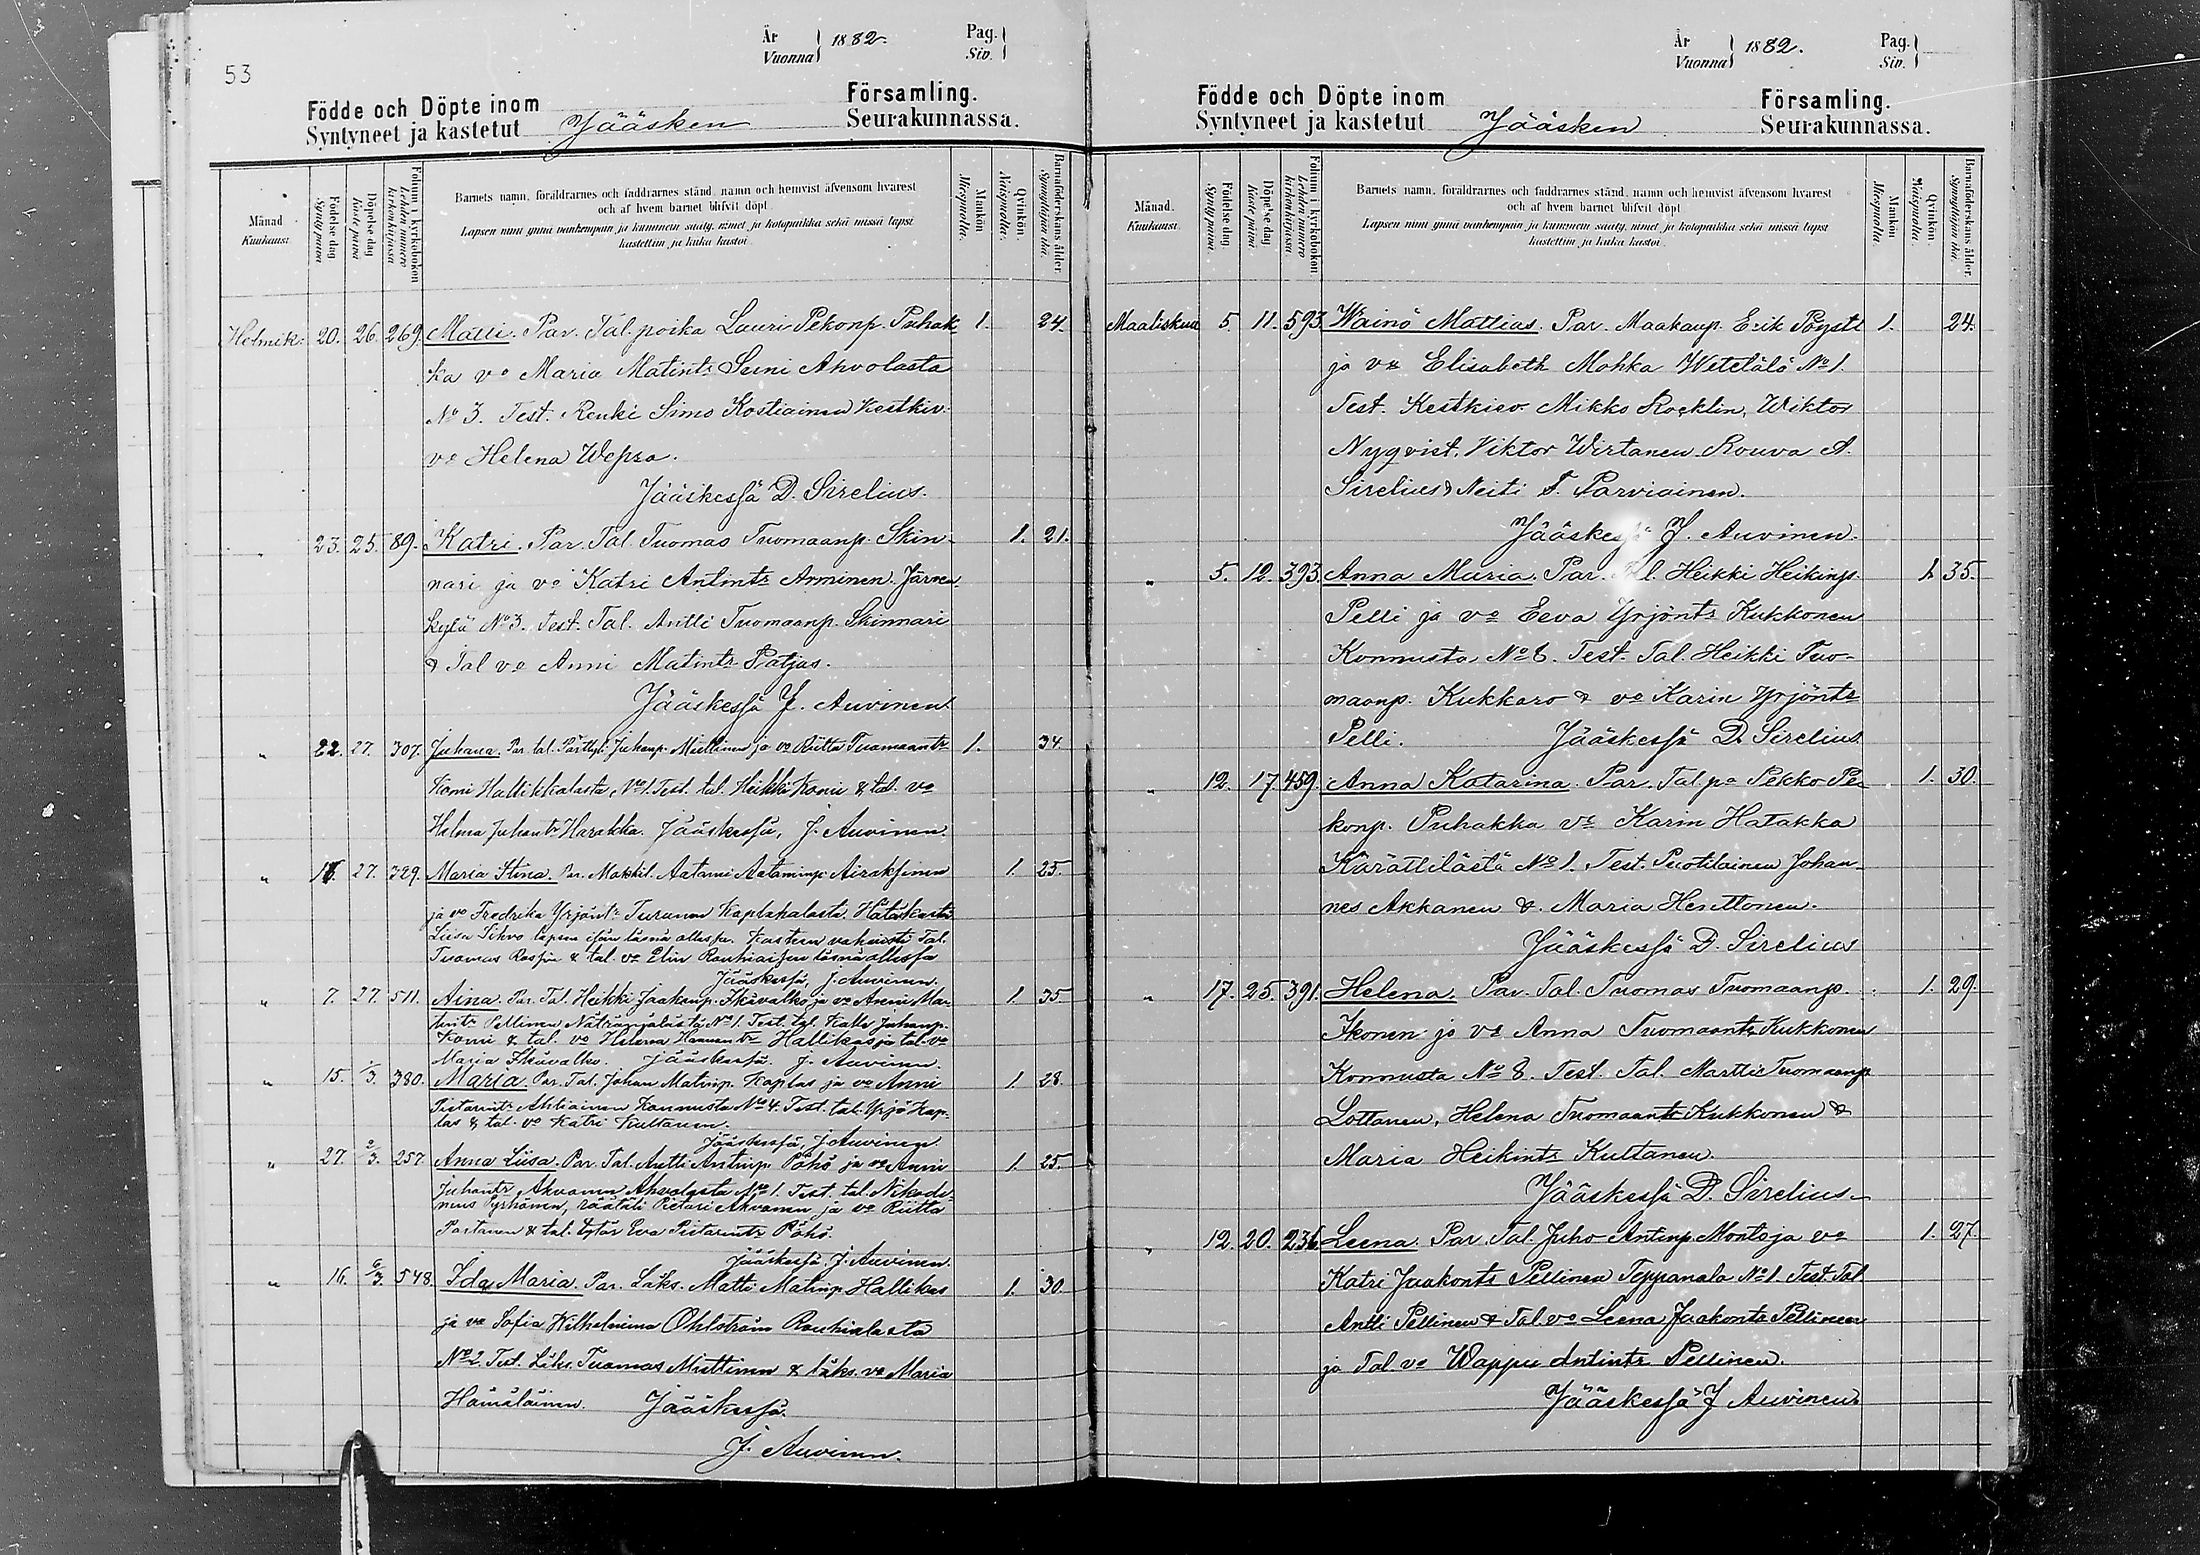 53
År
Vuonna } 1882.
Pag.
Siv.
Födde och Döpte inom
Syntyneet ja kastetut
Jääsken
Församling.
Seurakunnassa.
Månad
Kuukausi.
Födelse dag
Synty päivä
Döpelse dag
Kaste päivä
Folium i kyrkoboken
Lehden numero kirkonkirjassa
Barnets namn, föräldrarnes och faddrarnes stånd, namn och hemvist äfvensom hvarest
och af hvem barnet blifvit döpt.
Lapsen nimi ynnä vanhempain ja kummein sääty, nimet ja kotopaikka sekä missä lapsi
kastettiin ja kuka kastoi.
Mankön
Miespuolta.
Qvinkön.
Naispuolta.
Barnaföderskans ålder.
Synnyttäjän ikä.
Helmik. 20. 26. 269. Matti. Par. Tal. poika Lauri Pekonp. Puhak 1. 24.
ka vo Maria Matintr Suni Ahvolasta
No 3. Test. Renki Simo Kostiainen Kestkiv.
vo Helena Wepsa.
Jääskessä D. Sirelius.
" 23. 25. 89. Katri. Par. Tal. Tuomas Tuomaanp. Skin- 1. 21.
nari ja vo Katri Antintr Arminen. Järven
kylä No 3. Test. Tal. Antti Tuomaanp. Skinnari
& Tal vo Anni Matintr Patjas.
Jääskessä J. Auvinen.
" 22. 27. 307. Juhana. Par. tal. Pärttyli Juhanp. Miettinen ja vo Riitta Tuomaantr 1. 34
Komi Hallikkalasta, No 1. Test. tal. Heikki Komi & tal. vo
Helena Juhantr Harakka. Jääskessä, J. Auvinen.
" 27. 329. Maria Stina. Par. Mökkil. Aatami Aataminp. Airaksinen 1. 25.
ja vo Fredrika Yrjöntr Turunen Kaplahalasta. Hätäkaste
Liisa Sihvo lapsen isän läsnä ollessa. Kasteen vahvisti Tal.
Tuomas & tal. vo Elin Rouhiaisen läsnä ollessa
Jääskessä, J. Auvinen.
" 7. 27. 511. Aina. Par. Tal. Heikki Jaakonp. Ikävalko ja vo Anni Ma- 1. 35
tintr Pellinen No 1. Test. tal. Kalle Juhanp.
Komi & tal. vo Helena Hallikas ja tal. vo
Maria Ikävalko. Jääskessä. J. Auvinen.
" 15. 1/3. 380. Maria. Par. Tal. Johan Matinp. Kaplas ja vo Anni 1. 28.
Pietarintr Ahtiainen Konnusta No 4. Test. tal. Yrjö Kap-
las & tal. vo Katri Kultanen.
Jääskessä, J. Auvinen.
" 27. 2/3. 257. Anna Liisa. Par. Tal. Antti Antinp. Pöhö ja vo Anni 1. 25.
Juhantr Ahvonen Ahvolasta No 1. Test. tal. Nikode-
mus Pyrhönen, räätäli Pietari Ahvonen ja vo Riitta
Partanen & tal. tytär Eva Pietarintr Pöhö.
Jääskessä. J. Auvinen.
" 16. 6/3. 548. Ida Maria. Par. Läks. Matti Matinp. Hallikas 1. 30.
ja vo Sofia Wilhelmina Ohlström Rouhialasta
No 2. Test. Läks. Tuomas Miettinen & läks. vo Maria
Hämäläinen. Jääskessä.
J. Auvinen.
År
Vuonna } 1882.
Pag.
Siv.
Födde och Döpte inom
Syntyneet ja kastetut
Jääsken
Församling.
Seurakunnassa.
Månad.
Kuukausi.
Födelse dag
Synty päivä.
Döpelse dag
Kaste päivä.
Folium i kyrkoboken.
Lehden numero kirkonkirjassa.
Barnets namn, föräldrarnes och faddrarnes stånd, namn och hemvist äfvensom hvarest
och af hvem barnet blifvit döpt.
Lapsen nimi ynnä vanhempain ja kummein sääty, nimet ja kotopaikka sekä missä lapsi
kastettiin ja kuka kastoi.
Mankön
Miespuolta
Qvinkön.
Naispuolta.
Barnaföderskans ålder.
Synnyttäjän ikä.
Maaliskuu 5. 11. 593. Wäinö Mattias. Par. Maakaup. Erik Pöysti 1. 24.
ja vo Elisabeth Mohka Wetelälä No 1.
Test. Kestkiev. Mikko Rocklin, Wiktor
Nyqvist, Viktor Wirtanen. Rouva A.
Sirelius & Neiti F. Parviainen.
Jääskessä J. Auvinen.
" 5. 12. 393. Anna Maria. Par. Tal. Heikki Heikinp. 1. 35.
Pelli ja vo Eeva Yrjöntr Kukkonen
Konnusta No 8. Test. Tal. Heikki Tuo-
maanp. Kukkaro & vo Karin Yrjöntr
Pelli. Jääskessä D. Sirelius
" 12. 17. 459. Anna Katarina. Par. Tal pa Pekko Pe- 1. 30.
konp. Puhakka vo Karin Hatakka
Kärättilästä No 1. Test. Puotilainen Johan-
nes Akkanen & Maria Henttonen.
Jääskessä D. Sirelius
" 17. 25. 391. Helena. Par. Tal. Tuomas Tuomaanp. 1. 29.
Ikonen ja vo Anna Tuomaantr Kukkonen
Konnusta No 8. Test. Tal. Martti Tuomaanp
Lottanen, Helena Tuomaantr Kukkonen &
Maria Heikintr Kultanen.
Jääskessä D. Sirelius.
" 12. 20. 236. Leena. Par. Tal. Juho Antinp. Monto ja vo 1. 27.
Katri Jaakontr Pellinen Teppanala No 1. Test. Tal
Antti Pellinen & Tal. vo Leena Jaakontr Pellinen
ja Tal. vo Wappu Antintr Pellinen.
Jääskessä J Auvinen.